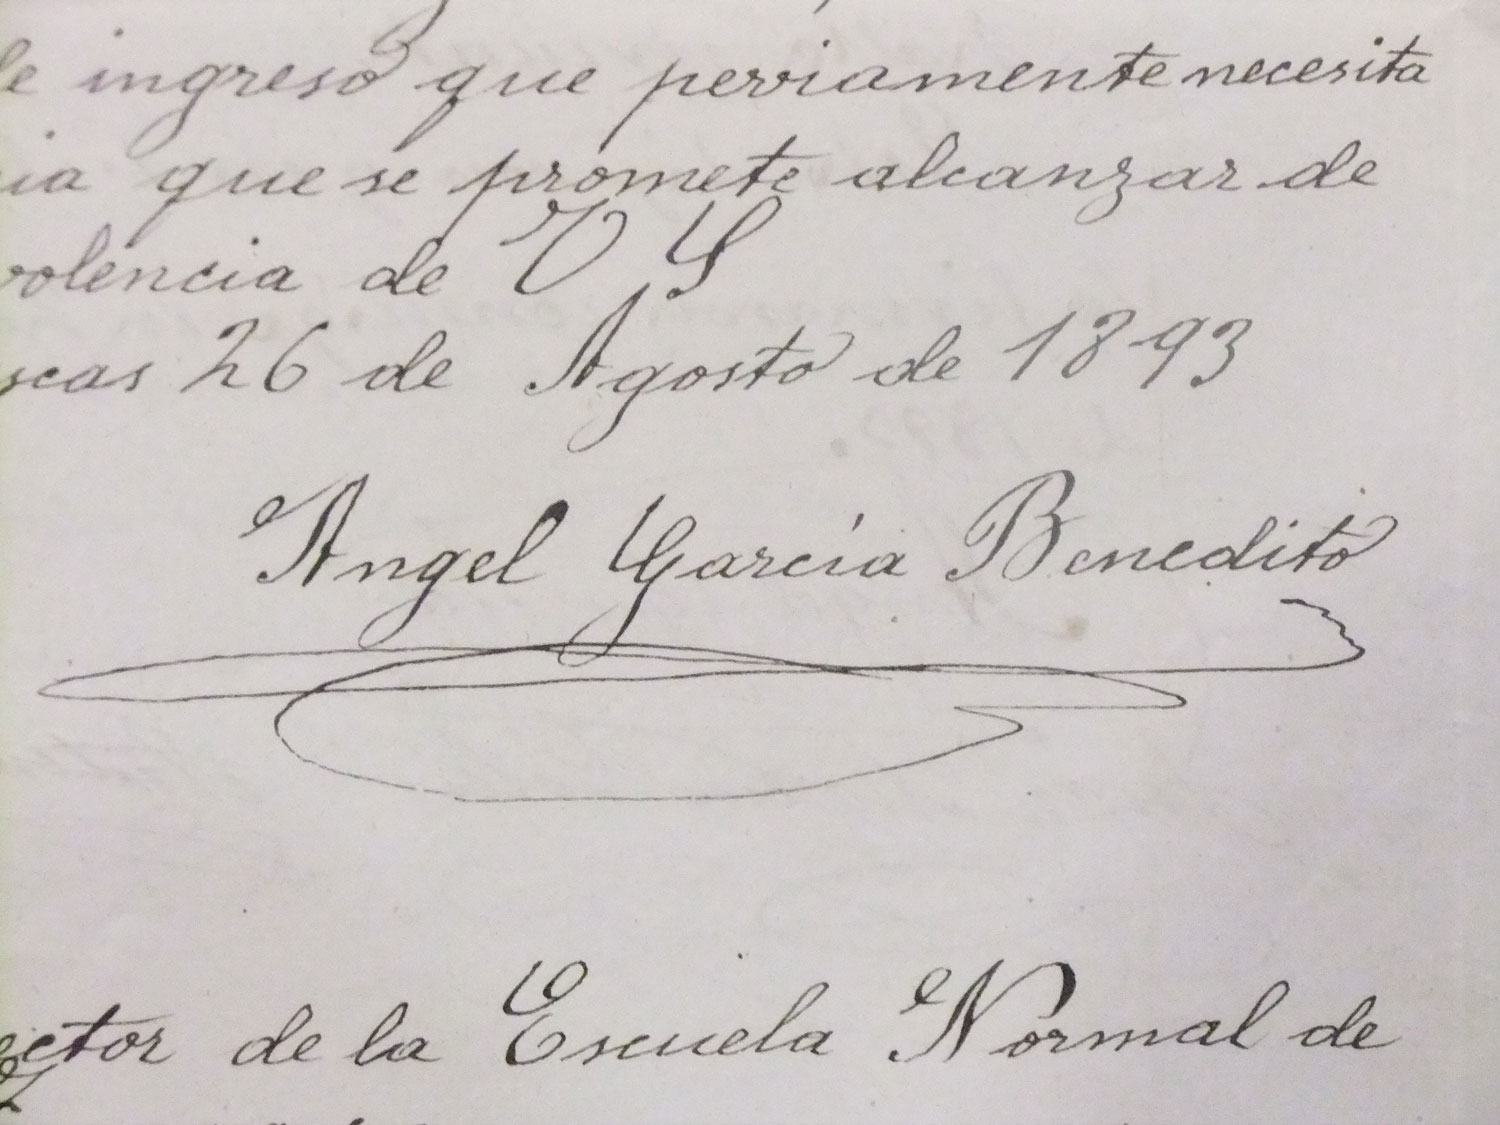 le ingreso que periamente necesita
ia que se promete alcanzar de
volencia de V S
scas 26 de Agosto de 1893
Angel García Benedito
ector de la Escuela Normal de